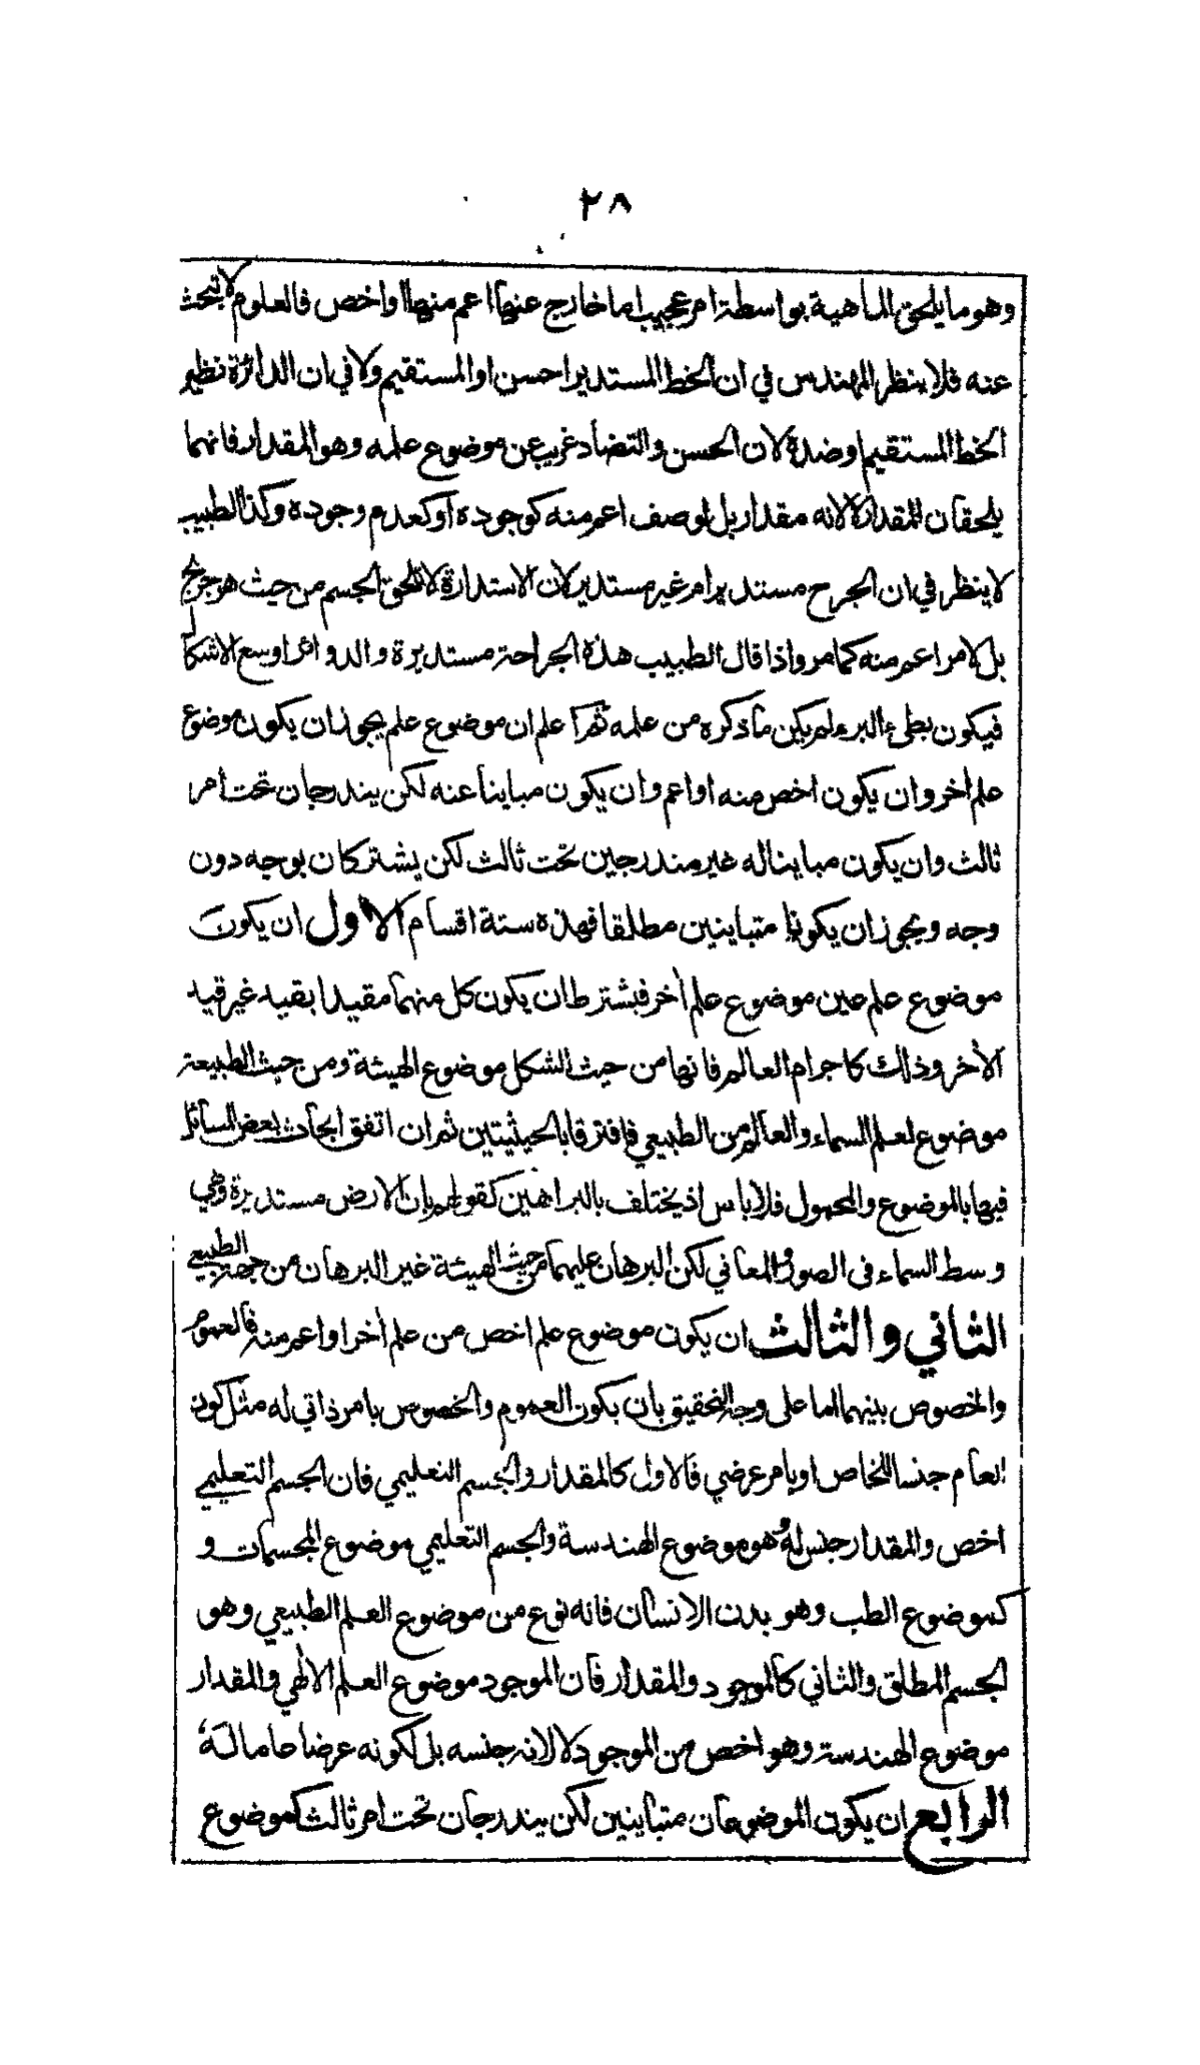 ٢٨
وهو ما يلحق الماهية بواسطة امر عجيب اما خارج عنها اعم منها او اخص فالعلوم لا تبحث
عنه فلا ينظر المهندس في ان الخط المستدير احسن او المستقيم ولا في ان الدائرة نظير
الخط المستقيم او ضده لان الحسن والتضاد غريب عن موضوع علمه وهو المقدار فانهما
يلحقان المقدار لا لانه مقدار بل لوصف اعم منه كوجوده او كعدم وجوده وكذا الطبيب
لا ينظر في ان الجرح مستدير ام غير مستدير لان الاستدارة لا تلحق الجسم من حيث هو جرح
بل لامر اعم منه كما مر واذا قال الطبيب هذه الجراحة مستديرة والدوائر اوسع الاشكال
فيكون بطيء البرء لم يكن ما ذكره من علمه ثم اعلم ان موضوع علم يجوز ان يكون موضوع
علم اخر وان يكون اخص منه او اعم وان يكون مباينا عنه لكن يندرجان تحت امر
ثالث وان يكون مباينا له غير مندرجين تحت ثالث لكن يشتركان بوجه دون
وجه ويجوز ان يكونا متباينين مطلقا فهذه ستة اقسام الاول ان يكون
موضوع علم عين موضوع علم أخر فيشترط ان يكون كل منهما مقيدا بقيد غير قيد
الأخر وذلك كاجرام العالم فانها من حيث الشكل موضوع الهيئة ومن حيث الطبيعة
موضوع لعلم السماء والعالم من الطبيعي فافترقا بالحيثيتين ثم ان اتفق ابحاث بعض المسائل
فيها بالموضوع والمحمول فلا باس اذ يختلف بالبراهين كقولهم بان الارض مستديرة وهي
وسط السماء في الصور والمعاني لكن البرهان عليهما من حيث الهيئة غير البرهان من جهة الطبيعي
الثاني والثالث ان يكون موضوع علم اخص من علم أخر او اعم منه فالعموم
والخصوص بينهما اما على وجه التحقيق بان يكون العموم والخصوص بامر ذاتي له مثل كون
العام جنسا للخاص او بامر عرضي فالاول كالمقدار والجسم التعليمي فان الجسم التعليمي
اخص والمقدار جنس له وهو موضوع الهندسة والجسم التعليمي موضوع المجسمات و
كموضوع الطب وهو بدن الانسان فانه نوع من موضوع العلم الطبيعي وهو
الجسم المطلق والثاني كالموجود والمقدار فان الموجود موضوع العلم الالهي والمقدار
موضوع الهندسة وهو اخص من الموجود لا لانه جنسه بل لكونه عرضا عاما له
الرابع ان يكون الموضوعان متباينين لكن يندرجان تحت امر ثالث كموضوع